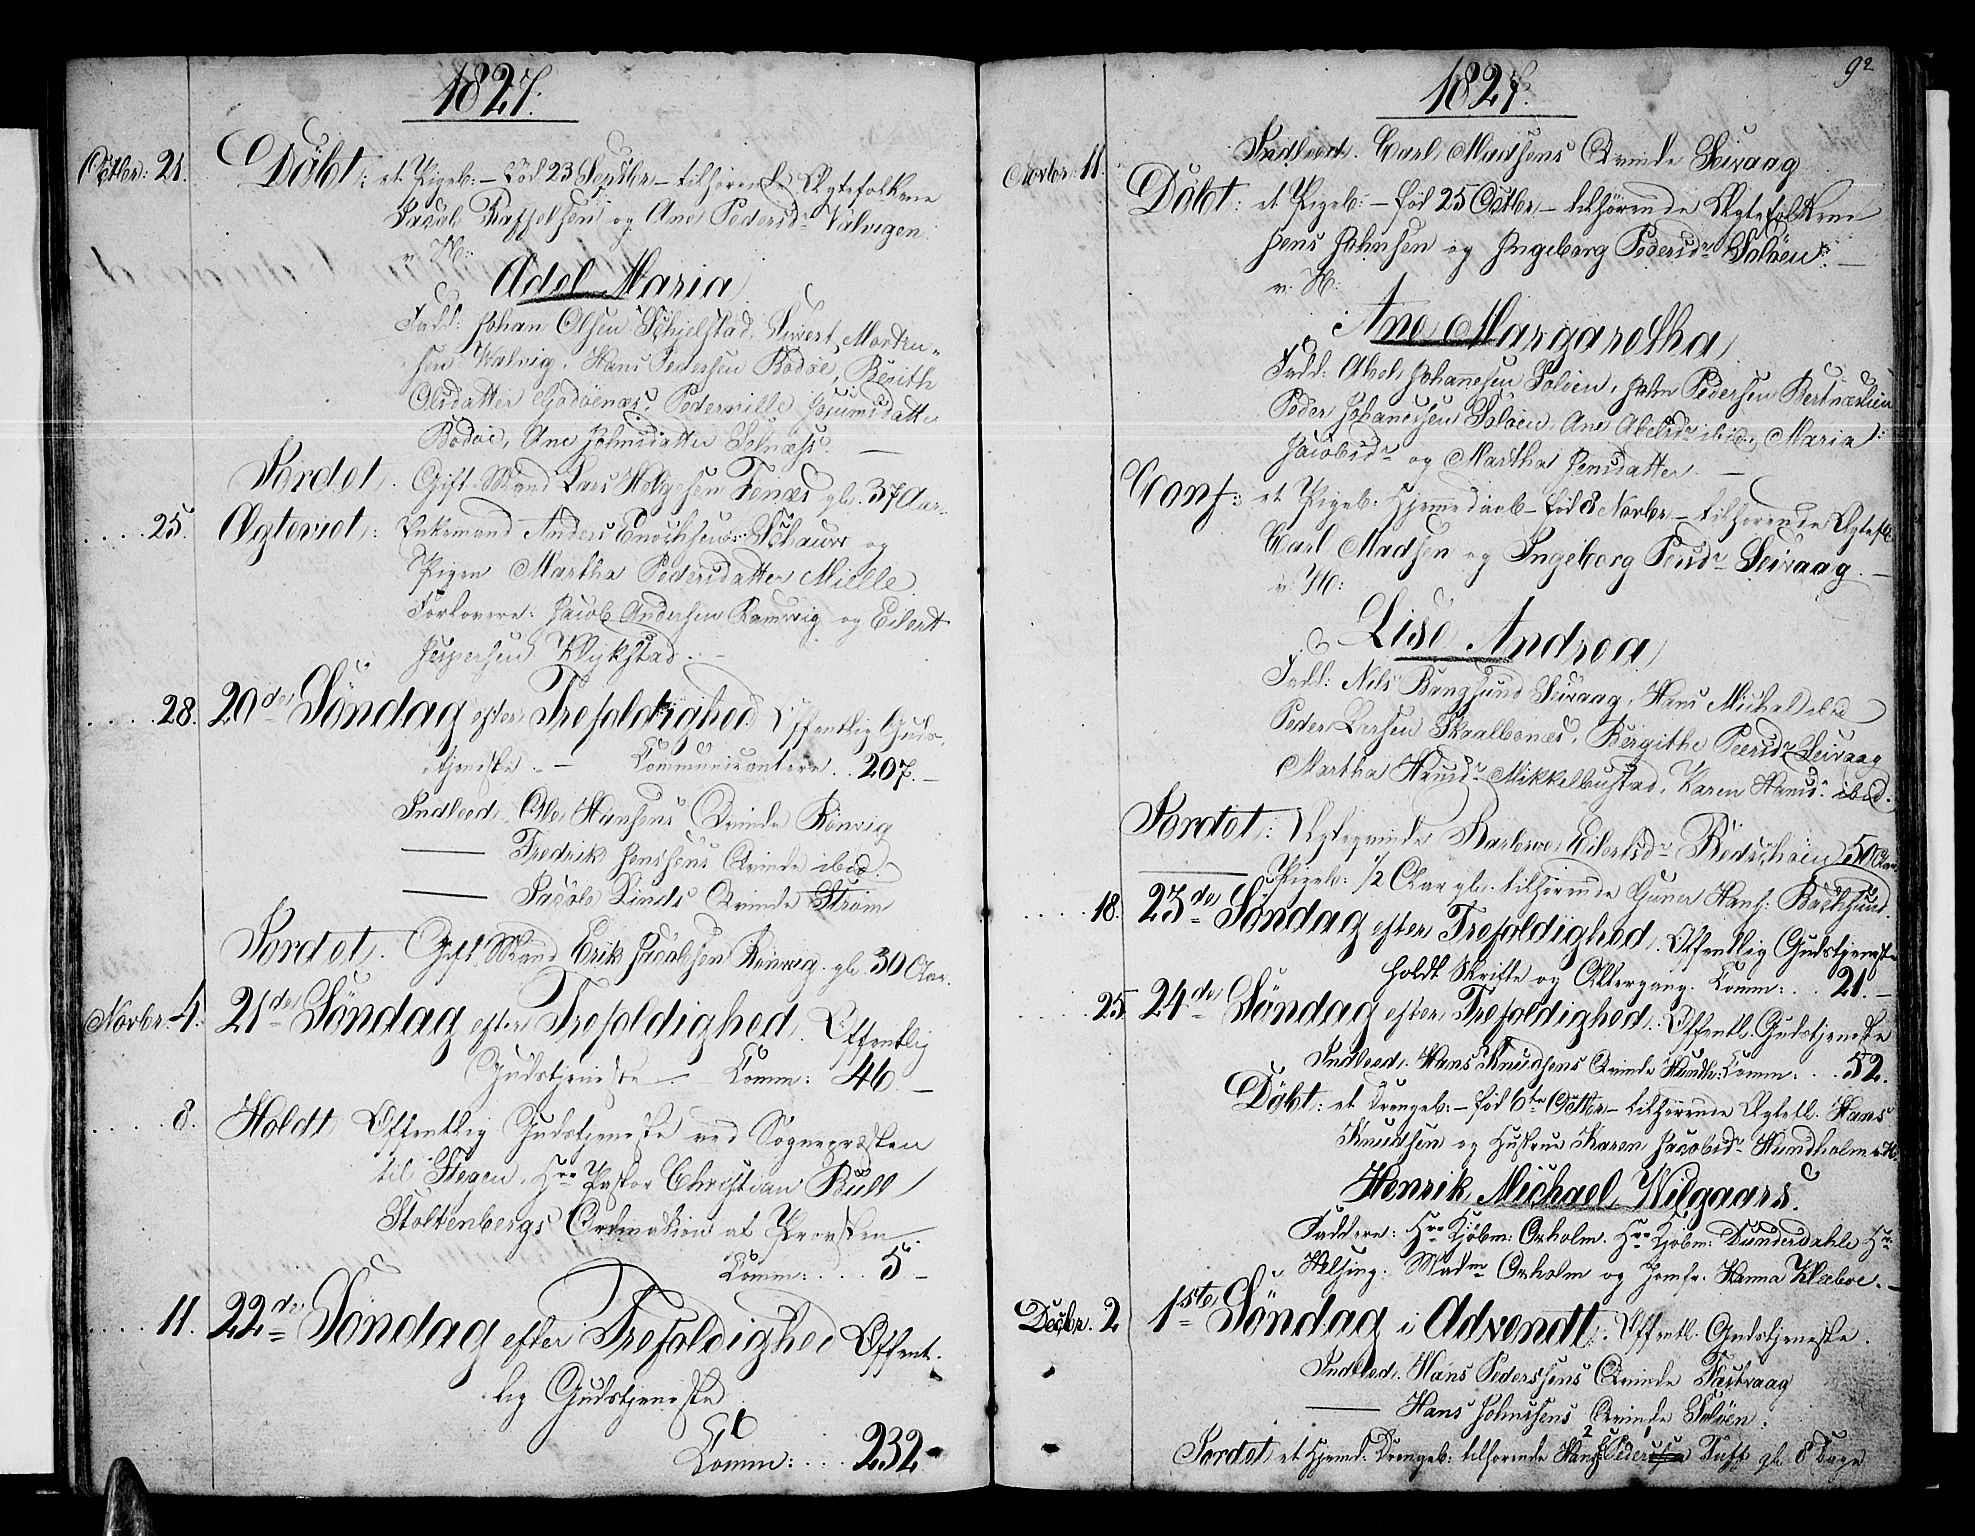 1827.
Octbr: 21. Döbt: et Pigeb: – föd 23 Septbr – tilhörende Ægtefolkene
Jacob Raffelsen og Ane Pedersdr Valvigen
v. N:
Adel Maria
Fadd: Johan Olsen Schjelstad, Sivert Martin-
sen Walvig, Hans Pedersen Bodöe, Berith
Olsdatter Godöenæs, Pedernille
Bodöe, Ane Johnsdatter Seknæss. –
Jordet. Gift Mand Lars Helgesen Fenæs gl. 37 Aar.
. . . . . 25. Ægteviet: Enkemand Anders Enochsen Schauw og
Pigen Martha Pedersdatter Mielle.
Forlovere: Jacob Andersen Ramsvig og Eilert
Jespersen Klykstad. –
. . . . . 28. 20de Söndag efter Trefoldighed Offentlig Guds-
tjeneste. – Communicantere . . 207. –
Indleed. Ole Hansens Qvinde Rönvig
—— Fredrik Jenssens Qvinde ibid.
—— Jacob Linds Qvinde Ström
Jordet. Gift Mand Erik Jacobsen Rönvig. gl. 30 Aar.
Novbr. 4. 21de Söndag efter Trefoldighed. Offentlig
Gudstjeneste. – Comm: 46. –
. . . . . 8. Holdt Offentlig Gudstjeneste ved Sognepræsten
til Stegen, Hrr Pastor Christian Bull
Stoltenbergs Ordination af Provsten.
Comm: . . . 5. –
. . . . . 11. 22de Söndag efter Trefoldighed Offent-
lig Gudstjeneste
Comm: . . . 232.
92
1827.
Novbr: 11. Indleed. Carl Madsens Qvinde Seivaag
Döbt: et Pigeb: – föd 25 Octbr – tilhörende Ægtefolkene
Jens Johnsen og Ingeborg Pedersdr Solöen. –
v. N:
Ane Margaretha
Fadd: Abel Johannesen Solöen, John Pedersen Bertnæslien
Peder Johanesen Solöen, Ane Abelsdr ibid, Maria
Jacobsdr og Martha Jensdatter. –
Conf: et Pigeb: Hjemmedöb – föd 8 Novbr – tilhörende Ægtef
Carl Madsen og Ingeborg Pensdr Seivaag. –
v. N:
Lise Andrea
Fadd: Nils Bangsund Seivaag, Hans Michel ibid
Peder Larsen Skaalbones, Bergithe Peersdr Seivaag
Martha Hansdr Mikkelbustad, Karen Hansdr ibid.
Jordet: Ægteqvinde Barbroe Eilertsdr Rödschoien 50 Aar
—— Pigeb: 1/2 Aar gl. tilhörende Guner Hans: Backsund.
. . . . . 18. 23de Söndag efter Trefoldighed. Offentlig Gudstjeneste
holdt Skrifte og Altergang. Comm: . . 21. –
. . . . . 25 24de Söndag efter Trefoldighed. Offentl. Gudstjeneste
Indleed. Hans Knudsens Qvinde Hundh: Comm: . . 52.
Döbt: et Drengeb: – föd 6te Octbr – tilhörende Ægtefl. Hans
Knudsen og Hustrue Karen Jacobsdr Hundholm v. N.
Henrik Michael Wilgaars.
Faddere: Hrr Kjöbm: Oxholm. Hrr Kjöbm: Dunderdahle Hrr
Helsing: Madme Oxholm og Jomfr. Hanna Klæboe. –
Decbr. 2 1ste Söndag i Advendt. Offentl. Gudstjeneste.
Indleed. Hans Pederssens Qvinde Fastvaag
—— Hans Johnssens Qvinde Solöen.
Jordet et Hjemd: Drengeb: tilhörende Hans Peder Tuff gl 8 Dage